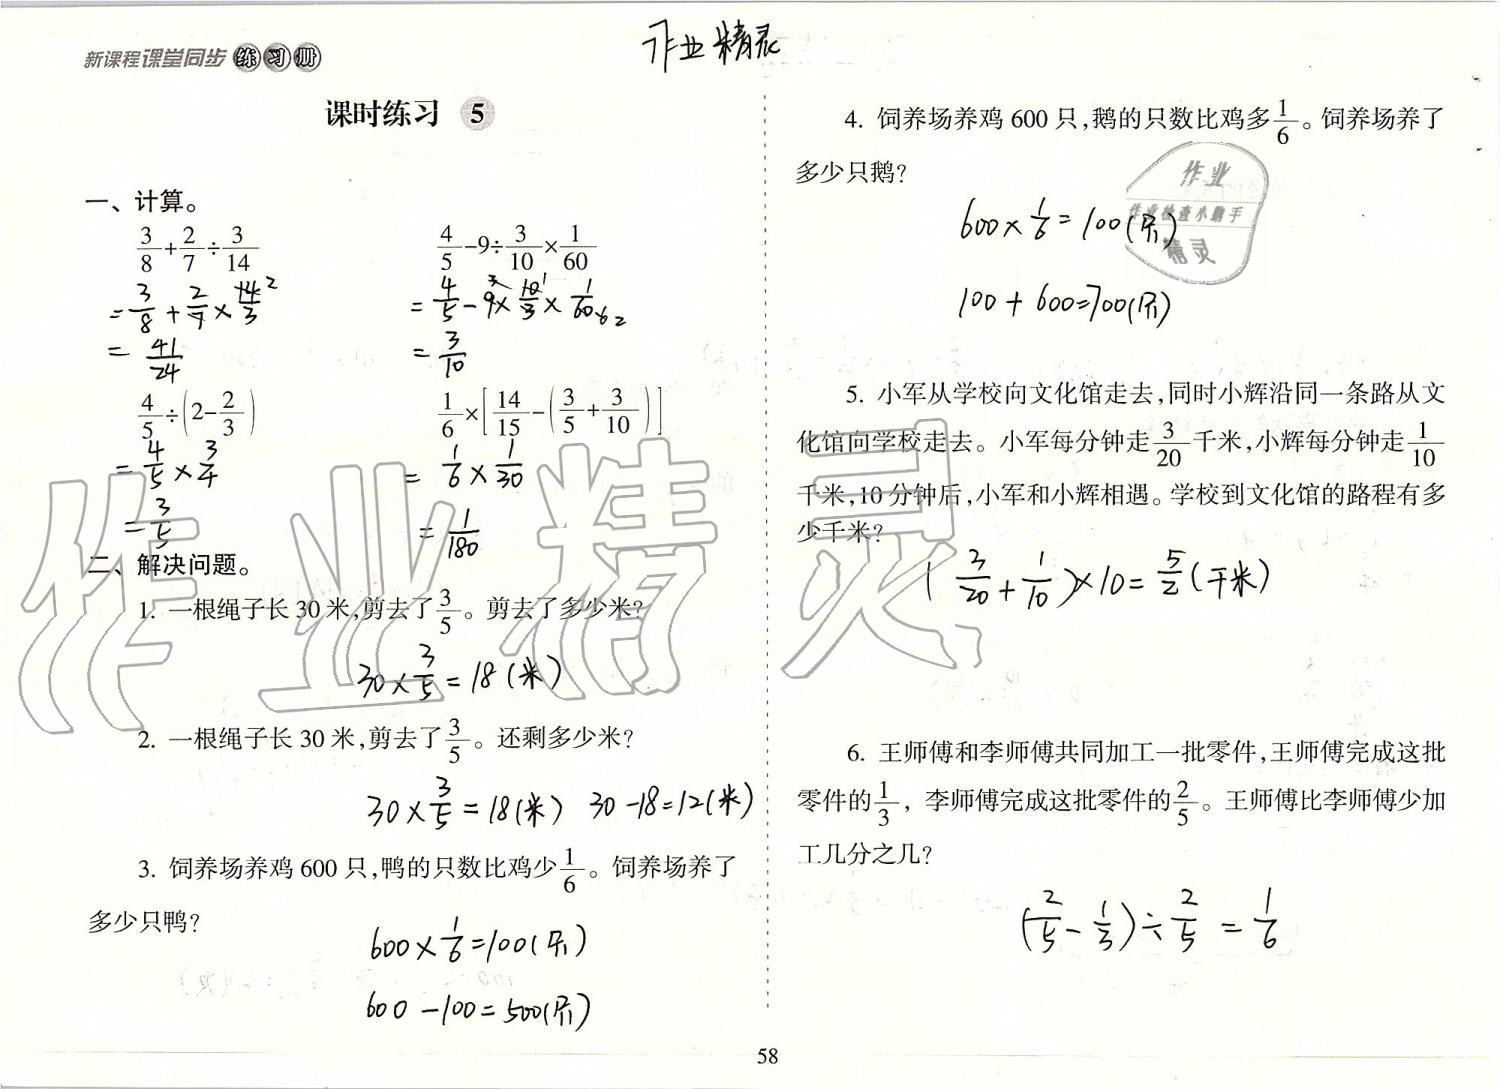 新课程课堂同步练习册
作业精灵
课时练习 5
一、计算。
3/8+2/7÷3/14
4/5-9÷3/10×1/60
=3/8+2/7×14/3 2
=4/5-9×10/3×1/60 3 1 62
=41/24
=3/10
4/5÷(2-2/3)
1/6×[14/15-(3/5+3/10)]
=4/5×3/4
=1/6×1/30
=3/5
=1/180
二、解决问题。
1. 一根绳子长30米,剪去了3/5。剪去了多少米?
30×3/5=18(米)
2. 一根绳子长30米,剪去了3/5。还剩多少米?
30×3/5=18(米) 30-18=12(米)
3. 饲养场养鸡600只,鸭的只数比鸡少1/6。饲养场养了
多少只鸭?
600×1/6=100(只)
600-100=500(只)
4. 饲养场养鸡600只,鹅的只数比鸡多1/6。饲养场养了
多少只鹅?
作业
作业检查小助手
精灵
600×1/6=100(只)
100+600=700(只)
5. 小军从学校向文化馆走去,同时小辉沿同一条路从文
化馆向学校走去。小军每分钟走3/20千米,小辉每分钟走1/10
千米,10分钟后,小军和小辉相遇。学校到文化馆的路程有多
少千米?
(3/20+1/10)×10=5/2(千米)
6. 王师傅和李师傅共同加工一批零件,王师傅完成这批
零件的1/3，李师傅完成这批零件的2/5。王师傅比李师傅少加
工几分之几?
(2/5-1/3)÷2/5=1/6
作业精灵
58